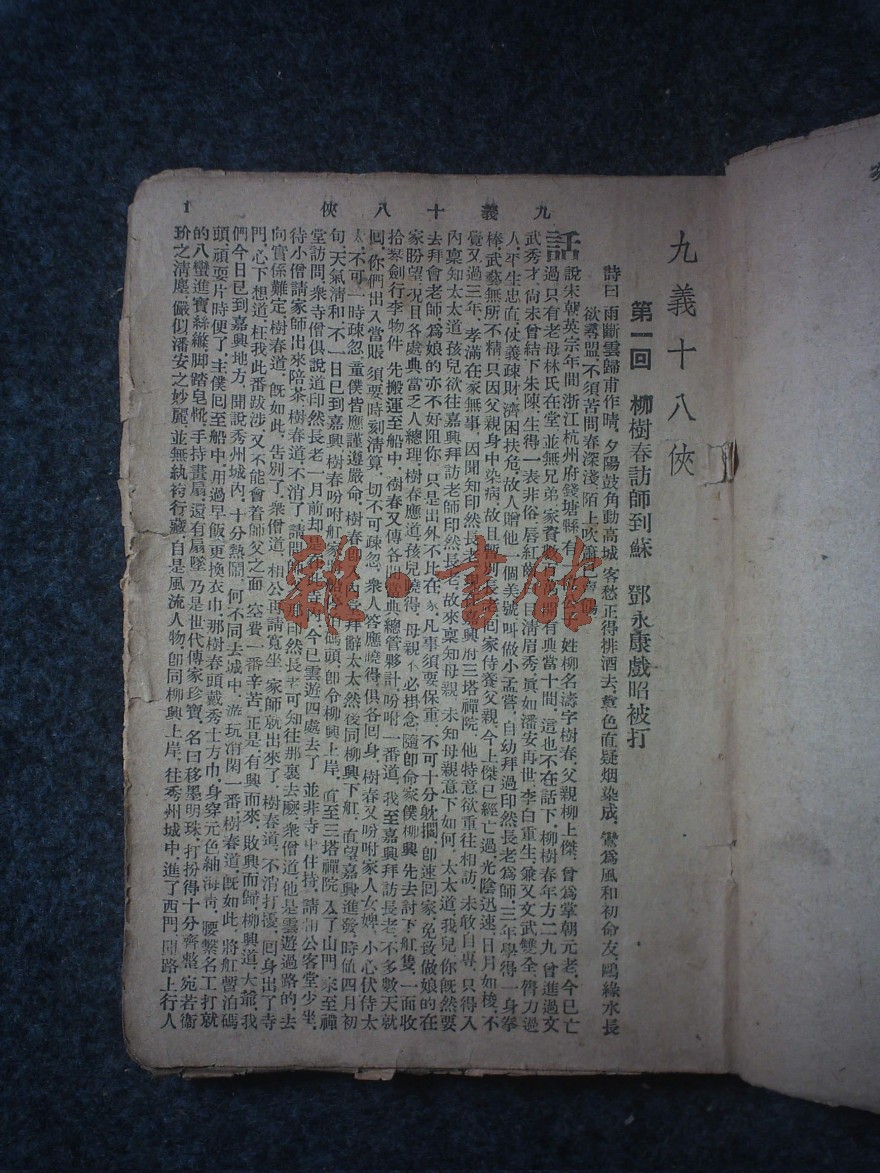 九義十八俠
第一回　柳樹春訪師到蘇　鄧永康戲昭被打
詩曰　雨斷雲歸甫作晴，夕陽鼓角動高城，客愁正得排酒去，草色直疑烟染成，鶯爲風和初命友，鷗緣水長
欲尋盟，不須苦問春深淺，陌上吹簫已賣餳
話說宋朝英宗年間，浙江杭州府錢塘縣，有　姓柳名濤字樹春，父親柳上傑，曾爲掌朝元老，今已亡
過，只有老母林氏在堂，並無兄弟，家資　有典當十間，這也不在話下，柳樹春年方二九，曾進過文
武秀才，尙未曾結下朱陳，生得一表非俗，唇紅齒　目淸眉秀，眞如潘安再世，李白重生，兼又文武雙全，膂力過
人，平生忠直，仗義疎財，濟困扶危，故人贈他一個美號，叫做小孟嘗，自幼拜過印然長老爲師，三年學得一身拳
棒，武藝無所不精，只因父親身中染病，故且暫別長　回家侍養父親，今上傑已經亡過，光陰迅速，日月如梭，不
覺又過三年，孝滿在家無事，因聞知印然長老，現　嘉興府三塔禪院，他特意欲重往相訪，未敢自專，只得入
內稟知太太道，孩兒欲往嘉興拜訪老師印然長老，故來稟知母親，未知母親意下如何，太太道，我兒，你旣然要
去拜會老師，爲娘的亦不好阻你，只是出外不比在家，凡事須要保重，不可十分躭擱，卽速回家，免致做娘的在
家盼望，况且各處典當乏人總理，樹春應道，孩兒曉得，母親不必掛念，隨卽命家僕柳興，先去討下舡隻，一面收
拾琴劍行李物件，先搬運至船中，樹春又傳各間當典總管夥計，吩咐一番道，我至嘉興拜訪長老，不多數天就
回，你們出入當賬，須要時刻淸算，切不可疎忽，衆人答應曉得，俱各回身，樹春又吩咐家人女婢，小心伏侍太
太，不可一時疎忽，童僕皆應謹遵嚴命，樹春卽入內堂拜辭太太，然後同柳興下舡，直望嘉興進發，時値四月初
旬，天氣淸和，不一日已到嘉興，樹春吩咐舡家　船　碼頭，卽令柳興上岸，直至三塔禪院，入了山門，來至禪
堂訪問，衆寺僧俱說道，印然長老一月前却是在此　今已雲遊四處去了，並非寺中住持，請相公客堂少坐，
待小僧請家師出來陪茶，樹春道，不消了，請問師父，那印然長老可知往那裏去麽，衆僧道，他是雲遊過路的，去
向實係難定，樹春道，旣如此，告別了，衆僧道，相公再請寬坐，家師就出來了，樹春道，不消打擾，回身出了寺
門，心下想道，枉我此番跋涉，又不能會着師父之面，空費一番辛苦，正是有興而來，敗興而歸，柳興道，大爺，我
們今日已到嘉興地方，聞說秀州城內，十分熱鬧，何不同去城中，游玩消閑一番，樹春道，旣如此，將舡暫泊碼
頭，頑耍片時便了，主僕回至船中，用過早飯，更換衣巾，那樹春頭戴秀士方巾，身穿元色紬海靑，腰繫名工打就
的八蠻進寶絲縧，脚踏皂靴，手持畫扇，還有扇墜，乃是世代傳家珍寶，名曰移墨明珠，打扮得十分齊整，宛若衞
玠之淸塵，儼似潘安之妙麗，並無紈袴行藏，自是風流人物，卽同柳興上岸，往秀州城中，進了西門，開路上行人
九義十八俠
1
雜·書館